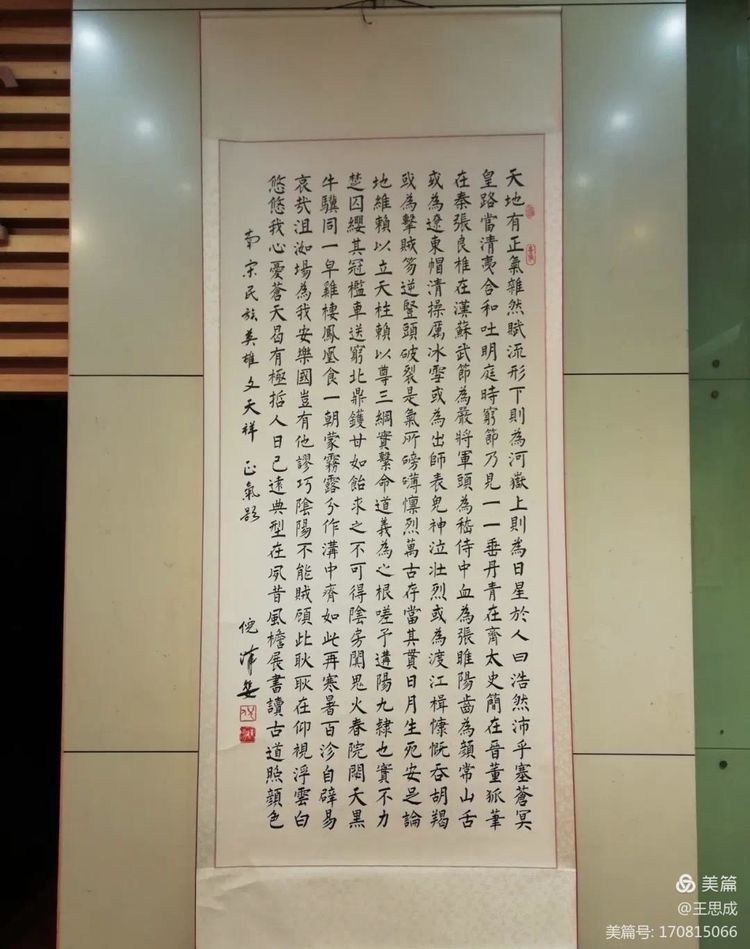 天地有正氣雜然賦流形下則為河嶽上則為日星於人曰浩然沛乎塞蒼冥
皇路當清夷含和吐明庭時窮節乃見一一垂丹青在齊太史簡在晉董狐筆
在秦張良椎在漢蘇武節為嚴將軍頭為嵇侍中血為張睢陽齒為顏常山舌
或為遼東帽清操厲冰雪或為出師表鬼神泣壯烈或為渡江楫慷慨吞胡羯
或為擊賊笏逆豎頭破裂是氣所磅礴凜烈萬古存當其貫日月生死安足論
地維賴以立天柱賴以尊三綱實繫命道義為之根嗟予遘陽九隸也實不力
楚囚纓其冠檻車送窮北鼎鑊甘如飴求之不可得陰房闃鬼火春院閟天黑
牛驥同一皁雞棲鳳凰食一朝蒙霧露分作溝中瘠如此再寒暑百沴自辟易
哀哉沮洳場為我安樂國豈有他謬巧陰陽不能賊顧此耿耿在仰視浮雲白
悠悠我心憂蒼天曷有極哲人日已遠典型在夙昔風檐展書讀古道照顏色
南宋民族英雄文天祥 正氣歌 倪沛安
美篇
@王思成
美篇号: 170815066